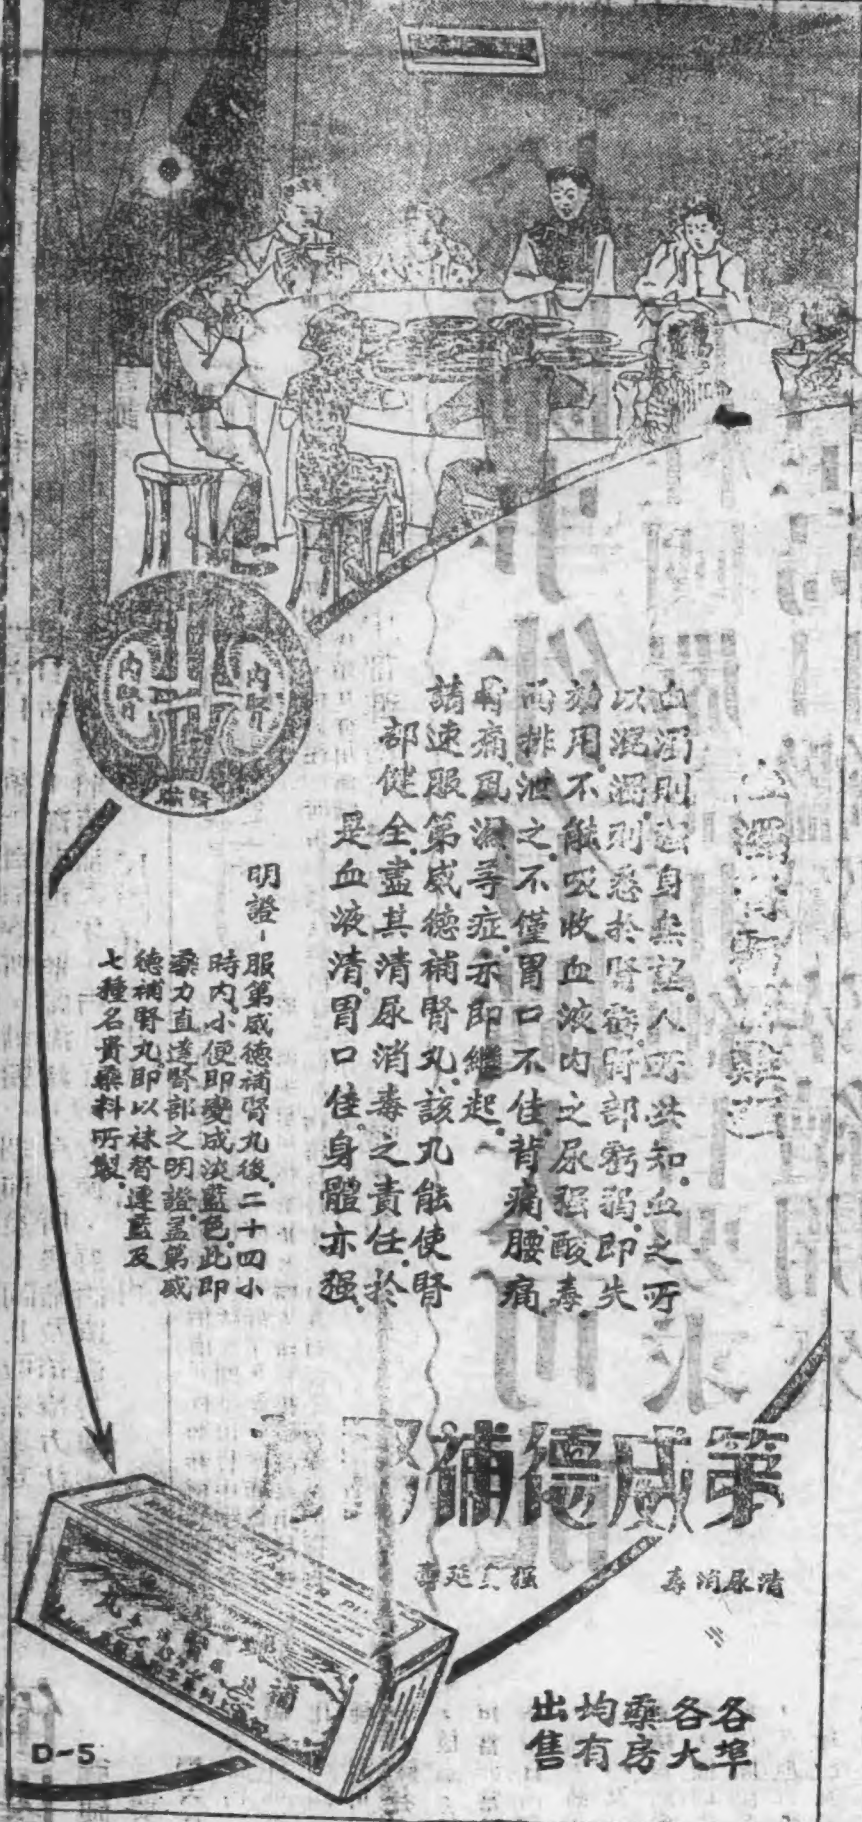 內腎
內腎
血濁則強身無望.人所共知.血之所
以混濁.則悉於腎宿.腎部虧弱.即失
効用.不能吸收血液內之尿强酸毒.
而排泄之.不僅胃口不佳.背痛.腰痛.
骨痛.風濕等症.亦即繼起.
請速服第威德補腎丸.該丸能使腎
部健全.盡其清尿消毒之責任.於
是血液清.胃口佳.身體亦强.
明證-服第威德補腎丸後.二十四小
時內.小便即變成淡藍色.此即
藥力直達腎部之明證.蓋第威
德補腎丸.即以袜督連藍及
七種名貴藥料所製.
第威德補腎丸
清尿消毒
延壽
各埠
各大
藥房
均有
出售
D-5